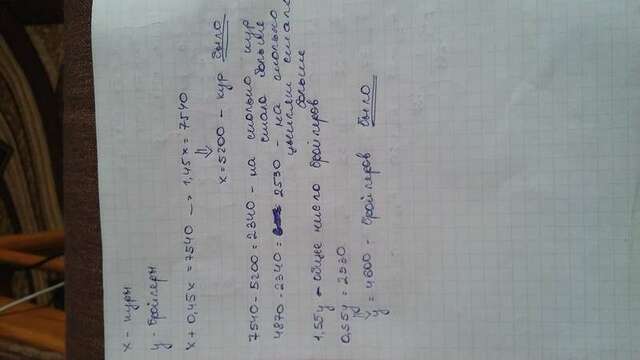 x - куры
y - бройлеры
x + 0,45x = 7540 → 1,45x = 7540
⇓
x = 5200 - кур было
7540 - 5200 = 2340 - на сколько кур
стало больше
4870 - 2340 = 2530 - на сколько
цыплят стало
больше
1,55y - общее число бройлеров
0,55y = 2530
⇓
y = 4600 - бройлеров было